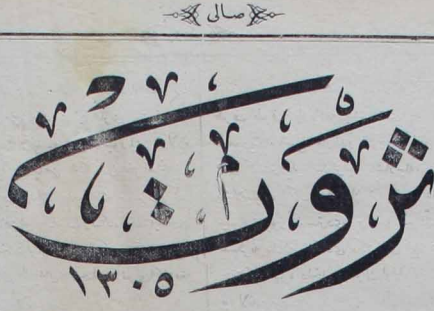 صالی
ثروت
١٣٠٥